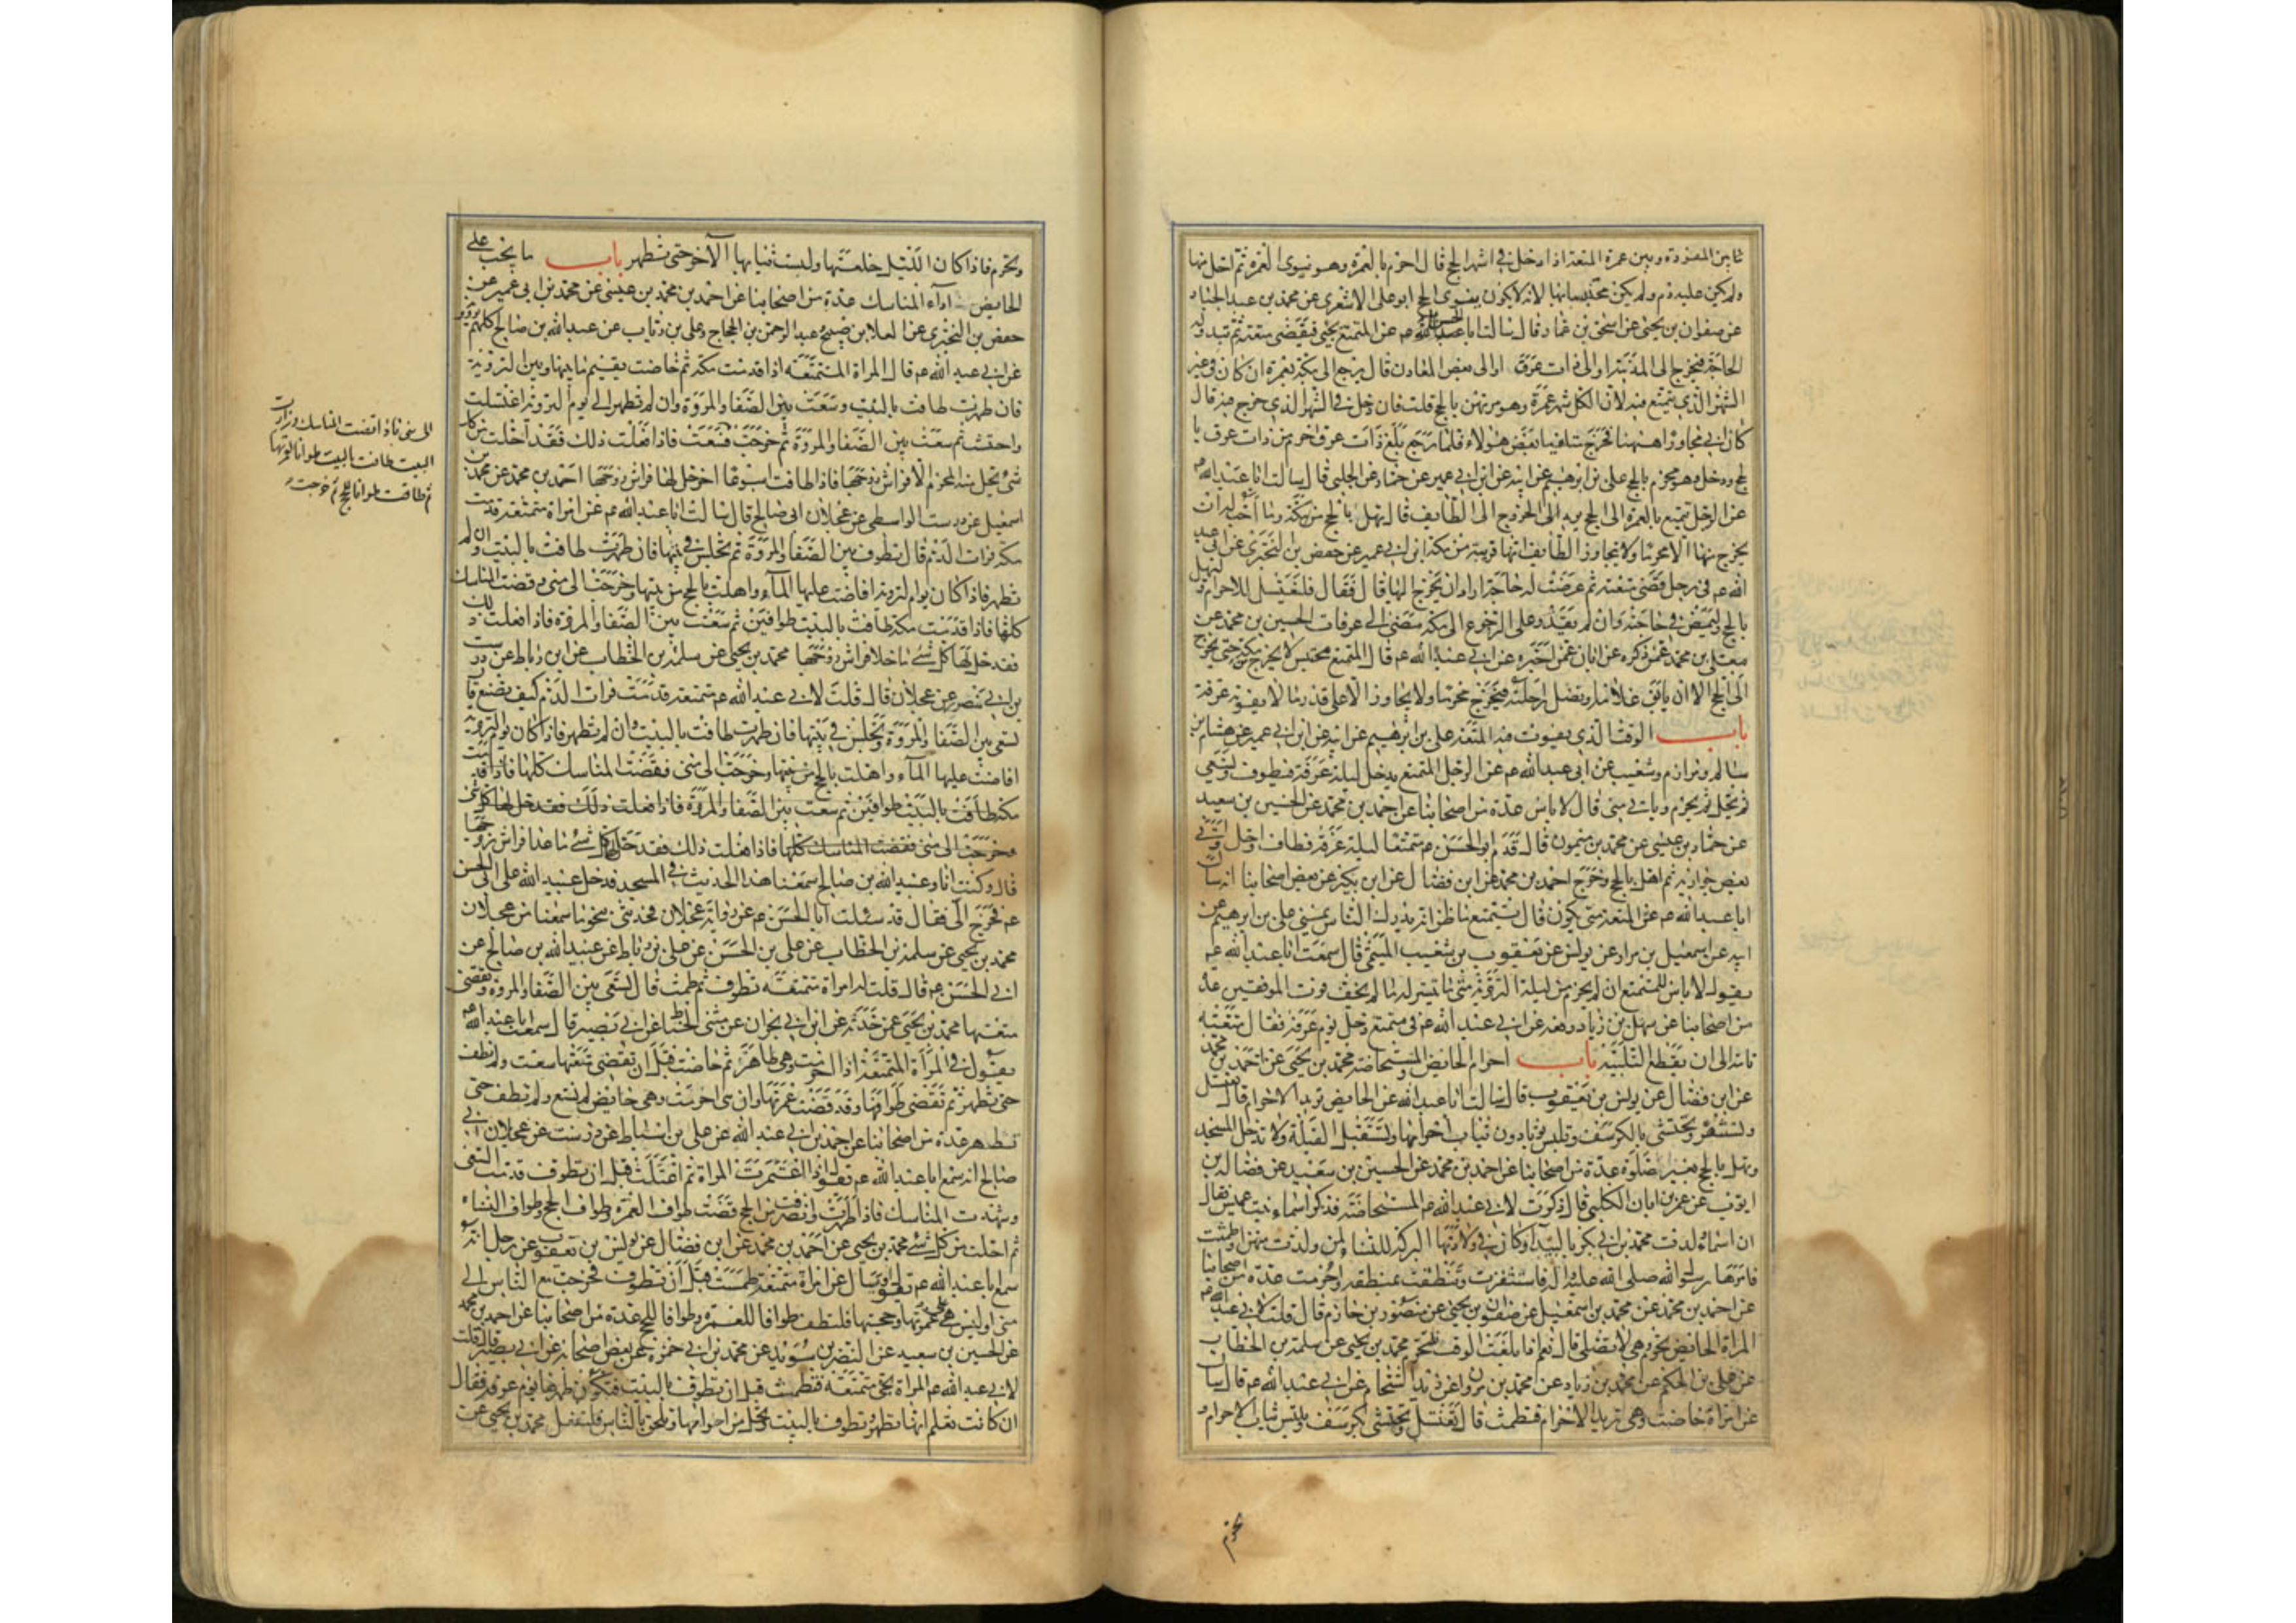 ما بين المفردة وبين عمرة المتعة اذا دخل فى اشهر الحج قال احرم بالعمرة وهو ينوى العمرة ثم احل منها
ولم يكن عليه دم ولم يكن محتبسا بها لانه لا يكون ينوى الحج ابو على الاشعرى عن محمد بن عبد الجبار
عن صفوان بن يحيى عن اسحق بن عمار قال سالت ابا الحسن عن المتمتع يجىء فيقضى متعته ثم تبدو له
الحاجة فيخرج الى المدينة او الى ذات عرق او الى بعض المعادن قال يرجع الى مكة بعمرة ان كان فى غير
الشهر الذى يتمتع فيه لان لكل شهر عمرة وهو مرتهن بالحج قلت فان دخل فى الشهر الذى خرج فيه قال
كان ابى مجاورا هيهنا فخرج متلقيا بعض هولاء فلما رجع بلغ ذات عرق احرم من ذات عرق با
لحج ودخل وهو محرم بالحج على بن ابرهيم عن ابيه عن ابن ابى عمير عن حماد عن الحلبى قال سالت ابا عبد الله ع
عن الرجل يتمتع بالعمرة الى الحج يريد الخروج الى الطايف قال يهل بالحج من مكة وما احب له ان
يخرج منها الا محرما ولا يتجاوز الطايف انها قريبة من مكة ابن ابى عمير عن حفص بن البخترى عن ابى عبد
الله ع فى رجل قضى متعته ثم عرضت له حاجة اراد ان يخرج اليها قال فقال فليغتسل للاحرام وليهل
بالحج وليمض فى حاجته وان لم يقدر على الرجوع الى مكة مضى الى عرفات الحسين بن محمد عن
معلى بن محمد عمن ذكره عن ابان عمن اخبره عن ابى عبد الله ع قال المتمتع محتبس لا يخرج من مكة حتى يخرج
الى الحج الا ان يابق غلامه او تضل راحلته فيخرج محرما ولا يجاوز الا على قدر ما لا يفوته عرفة
باب الوقت الذى يفوت فيه المتعة على بن ابرهيم عن ابيه عن ابن ابى عمير عن هشام بن
سالم ومرازم وشعيب عن ابى عبد الله ع عن الرجل المتمتع يدخل ليلة عرفة فيطوف ويسعى
ثم يحل ثم يحرم وياتى منى قال لا باس عدة من اصحابنا عن احمد بن محمد عن الحسين بن سعيد
عن حماد بن عيسى عن محمد بن ميمون قال قدم ابو الحسن ع متمتعا ليلة عرفة فطاف واحل واتى
بعض جواريه ثم اهل بالحج وخرج احمد بن محمد عن ابن فضال عن ابن بكير عن بعض اصحابنا انه سال
ابا عبد الله ع عن المتعة متى يكون قال يتمتع ما ظن انه يدرك الناس بمنى على بن ابرهيم عن
ابيه عن اسمعيل بن مرار عن يونس عن يعقوب بن شعيب الميثمى قال سمعت ابا عبد الله ع
يقول لا باس للمتمتع ان لم يحرم من ليلة التروية متى ما تيسر له ما لم يخف فوت الموقفين عدة
من اصحابنا عن سهل بن زياد رفعه عن ابى عبد الله ع فى متمتع دخل يوم عرفة فقال متعته
تامة الى ان يقطع التلبية باب احرام الحايض والمستحاضة محمد بن يحيى عن احمد بن محمد
عن ابن فضال عن يونس بن يعقوب قال سالت ابا عبد الله عن الحايض تريد الاحرام قال تغتسل
وتستثفر وتحتشى بالكرسف وتلبس ثوبا دون ثياب احرامها وتستقبل القبلة ولا تدخل المسجد
وتهل بالحج بغير صلوة عدة من اصحابنا عن احمد بن محمد عن الحسين بن سعيد عن فضالة بن
ايوب عن عمر بن ابان الكلبى قال ذكرت لابى عبد الله ع المستحاضة فذكر اسماء بنت عميس فقال
ان اسماء ولدت محمد بن ابى بكر بالبيدآء وكان فى ولادتها البركة للنساء لمن ولدت منهن او طمثت
فامرها رسول الله صلى الله عليه واله فاستثفرت وتنطقت بمنطقة واحرمت عدة من اصحابنا
عن احمد بن محمد عن محمد بن اسمعيل عن صفون بن يحيى عن منصور بن حازم قال قلت لابى عبد الله ع
المراة الحايض تحرم وهى لا تصلى قال نعم اذا بلغت الوقت فلتحرم محمد بن يحيى عن سلمة بن الخطاب
عن على بن الحكم عن محمد بن زياد عن محمد بن مروان عن زيد الشحام عن ابى عبد الله ع قال سال
عن امراة حاضت وهى تريد الاحرام فتطمث قال تغتسل وتحتشى بكرسف وتلبس ثياب الاحرام و
تحرم
وتحرم فاذا كان الليل خلعتها ولبست ثيابها الاخر حتى تطهر باب ما يجب على
الحايض فى اداء المناسك عدة من اصحابنا عن احمد بن محمد بن عيسى عن محمد بن ابى عمير عن
حفص بن البخترى عن العلا بن صبيح وعبد الرحمن بن الحجاج وعلى بن رئاب عن عبد الله بن صالح كلهم يروونه
عن ابى عبد الله ع قال المراة المتمتعة اذا قدمت مكة ثم حاضت يقيم ما بينها وبين التروية
فان طهرت طافت بالبيت وسعت بين الصفا والمروة وان لم تطهر الى يوم التروية اغتسلت
واحتشت ثم سعت بين الصفا والمروة ثم خرجت فاذا فعلت ذلك فقد احلت من كل
شئ يحل منه المحرم الا فراش زوجها فاذا طافت اسبوعا اخر حل لها فراش زوجها احمد بن محمد عن محمد بن
اسمعيل عن درست الواسطى عن عجلان ابى صالح قال سالت ابا عبد الله ع عن امراة متمتعة قدمت
مكة فرات الدم قال تطوف بين الصفا والمروة ثم تجلس فى بيتها فان طهرت طافت بالبيت وان لم
تطهر فاذا كان يوم التروية افاضت عليها المآء واهلت بالحج من بيتها وخرجت الى منى وقضت المناسك
كلها فاذا قدمت مكة طافت بالبيت طوافين ثم سعت بين الصفا والمروة فاذا فعلت ذلك
فقد حل لها كل شئ ما خلا فراش زوجها محمد بن يحيى عن سلمة بن الخطاب عن ابن رباط عن درست
بن ابى منصور عن عجلان قال قلت لابى عبد الله ع متمتعة قدمت فرات الدم كيف تصنع قال
تسعى بين الصفا والمروة وتجلس فى بيتها فان طهرت طافت بالبيت وان لم تطهر فاذا كان يوم التروية
افاضت عليها المآء واهلت بالحج من بيتها وخرجت الى منى فقضت المناسك كلها فاذا قدمت
مكة طافت بالبيت طوافين ثم سعت بين الصفا والمروة فاذا فعلت ذلك فقد حل لها كل شئ
وخرجت الى منى فقضت المناسك كلها فاذا فعلت ذلك فقد حل لها كل شئ ما عدا فراش زوجها
قال وكنت انا وعبيد الله بن صالح سمعنا هذا الحديث فى المسجد فدخل عبيد الله على ابى الحسن
ع فخرج الى فقال قد سالت ابا الحسن ع عن رواية عجلان فحدثنى بنحو ما سمعنا من عجلان
محمد بن يحيى عن سلمة بن الخطاب عن على بن الحسن عن على بن رباط عن عبيد الله بن صالح عن
ابى الحسن ع قال قلت له امراة متمتعة تطوف ثم طمثت قال تسعى بين الصفا والمروة وتقضى
متعتها محمد بن يحيى عمن حدثه عن ابن ابى نجران عن مثنى الحناط عن ابى بصير قال سمعت ابا عبد الله ع
يقول فى المراة المتمتعة اذا احرمت وهى طاهر ثم حاضت قبل ان تقضى متعتها سعت ولم تطف
حتى تطهر ثم تقضى طوافها وقد قضت عمرتها وان هى احرمت وهى حايض لم تسع ولم تطف حتى
تطهر عدة من اصحابنا عن احمد بن ابى عبد الله عن على بن اسباط عن درست عن عجلان ابى
صالح انه سمع ابا عبد الله ع يقول اذا اعتمرت المراة ثم اعتلت قبل ان تطوف قدمت السعى
وشهدت المناسك فاذا طهرت وانصرفت من الحج قضت طواف العمرة وطواف الحج وطواف النساء
ثم احلت من كل شئ محمد بن يحيى عن احمد بن محمد عن ابن فضال عن يونس بن يعقوب عن رجل انه
سمع ابا عبد الله ع يقول وسال عن امراة متمتعة طمثت قبل ان تطوف فخرجت مع الناس الى
منى اوليس هى على عمرتها وحجتها فلتطف طوافا للعمرة وطوافا للحج عدة من اصحابنا عن احمد بن محمد
عن الحسين بن سعيد عن النضر بن سويد عن محمد بن ابى حمزة عن بعض اصحابه عن ابى بصير قال قلت
لابى عبد الله ع المراة تجئ متمتعة فتطمث قبل ان تطوف بالبيت فتكون طهرها يوم عرفة فقال
ان كانت تعلم انها تطهر وتطوف بالبيت وتحل من احرامها وتلحق بالناس فلتفعل محمد بن يحيى عن
الى منى فاذا قضت المناسك وزارت
البيت طافت بالبيت طوافا لعمرتها
ثم طافت طوافا للحج ثم خرجت